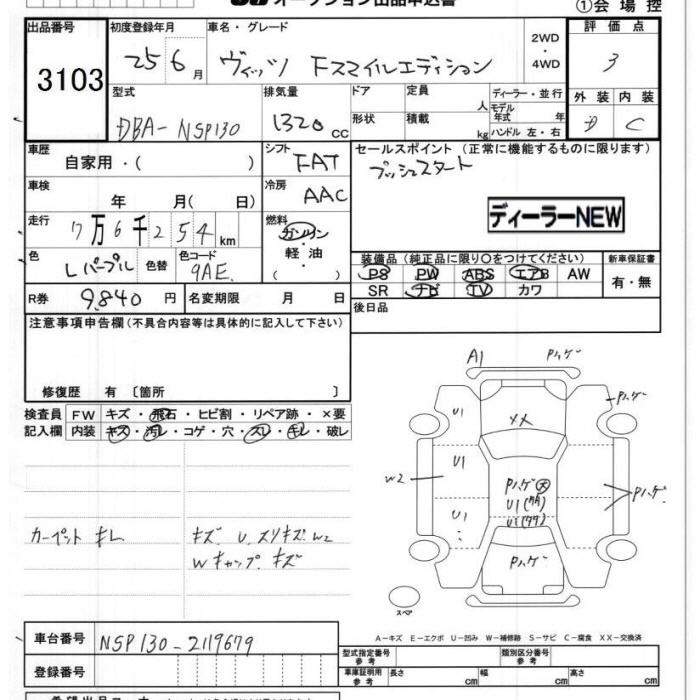 オークション出品申込書
①会場控
出品番号 初度登録年月 車名・グレード 2WD・4WD 評価点
3103 25 6月 ヴィッツ Fスマイルエディション 3
型式 排気量 ドア 定員 人 ディーラー・並行 外装 内装
DBA-NSP130 1320 cc 形状 積載 kg モデル年式 年 ハンドル 左・右 D C
車歴 自家用・( ) シフト FAT セールスポイント (正常に機能するものに限ります)
プッシュスタート
車検 年 月( 日) 冷房 AAC
ディーラーNEW
走行 7万6千254km 燃料 ガソリン・軽油・( )
色 Lパープル 色替 色コード 9AE 装備品 (純正品に限り〇をつけてください) 新車保証書
PS PW ABS エアB AW 有・無
SR ナビ TV カワ
R券 9,840円 名変期限 月 日 後日品
注意事項申告欄 (不具合内容等は具体的に記入して下さい)
修復歴 有 〔箇所 〕
検査員 FW キズ・飛石・ヒビ割・リペア跡・×要
記入欄 内装 キズ・汚レ・コゲ・穴・スレ・キレ・破レ
A1 Pハゲ
U1 Pハゲ
メメ
U1
W2 Pハゲ Pハゲ
U1
U1
Pハゲ
カーペット キレ キズ. U. スリキズ W2
Wキャップ キズ
スペア
A-キズ E-エクボ U-凹み W-補修跡 S-サビ C-腐食 XX-交換済
車台番号 NSP130-2119679
型式指定番号 参考 類別区分番号 参考
登録番号 車庫証明用 参考 長さ cm 幅 cm 高さ cm
希望出品コーナー